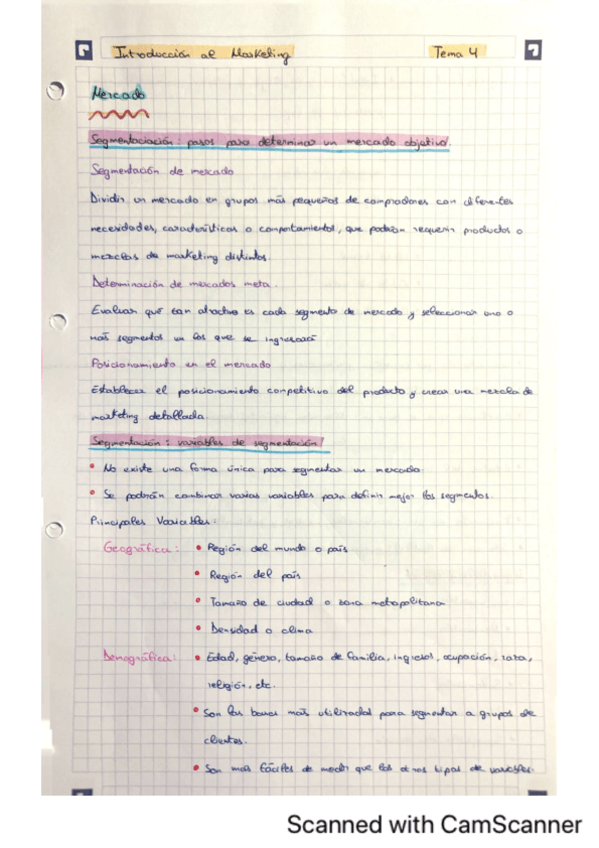 Introducción al Marketing Tema 4
Mercado
Segmentaciación: pasos para determinar un mercado objetivo.
Segmentación de mercado
Dividir un mercado en grupos más pequeños de compradores con diferentes
necesidades, características o comportamientos, que podrían requerir productos o
mezclas de marketing distintos.
Determinación de mercados meta.
Evaluar qué tan atractivo es cada segmento de mercado y seleccionar uno o
más segmentos en los que se ingresará
Posicionamiento en el mercado
Establecer el posicionamiento competitivo del producto y crear una mezcla de
marketing detallada.
Segmentación: variables de segmentación
• No existe una forma única para segmentar un mercado.
• Se podrán combinar varias variables para definir mejor los segmentos.
Principales Variables:
Geográfica: • Región del mundo o país
• Región del país
• Tamaño de ciudad o zona metropolitana
• Densidad o clima
Demográfica: • Edad, género, tamaño de familia, ingresos, ocupación, raza,
religión, etc.
• Son las bases más utilizadas para segmentar a grupos de
clientes.
• Son más fáciles de medir que los otros tipos de variables.
Scanned with CamScanner